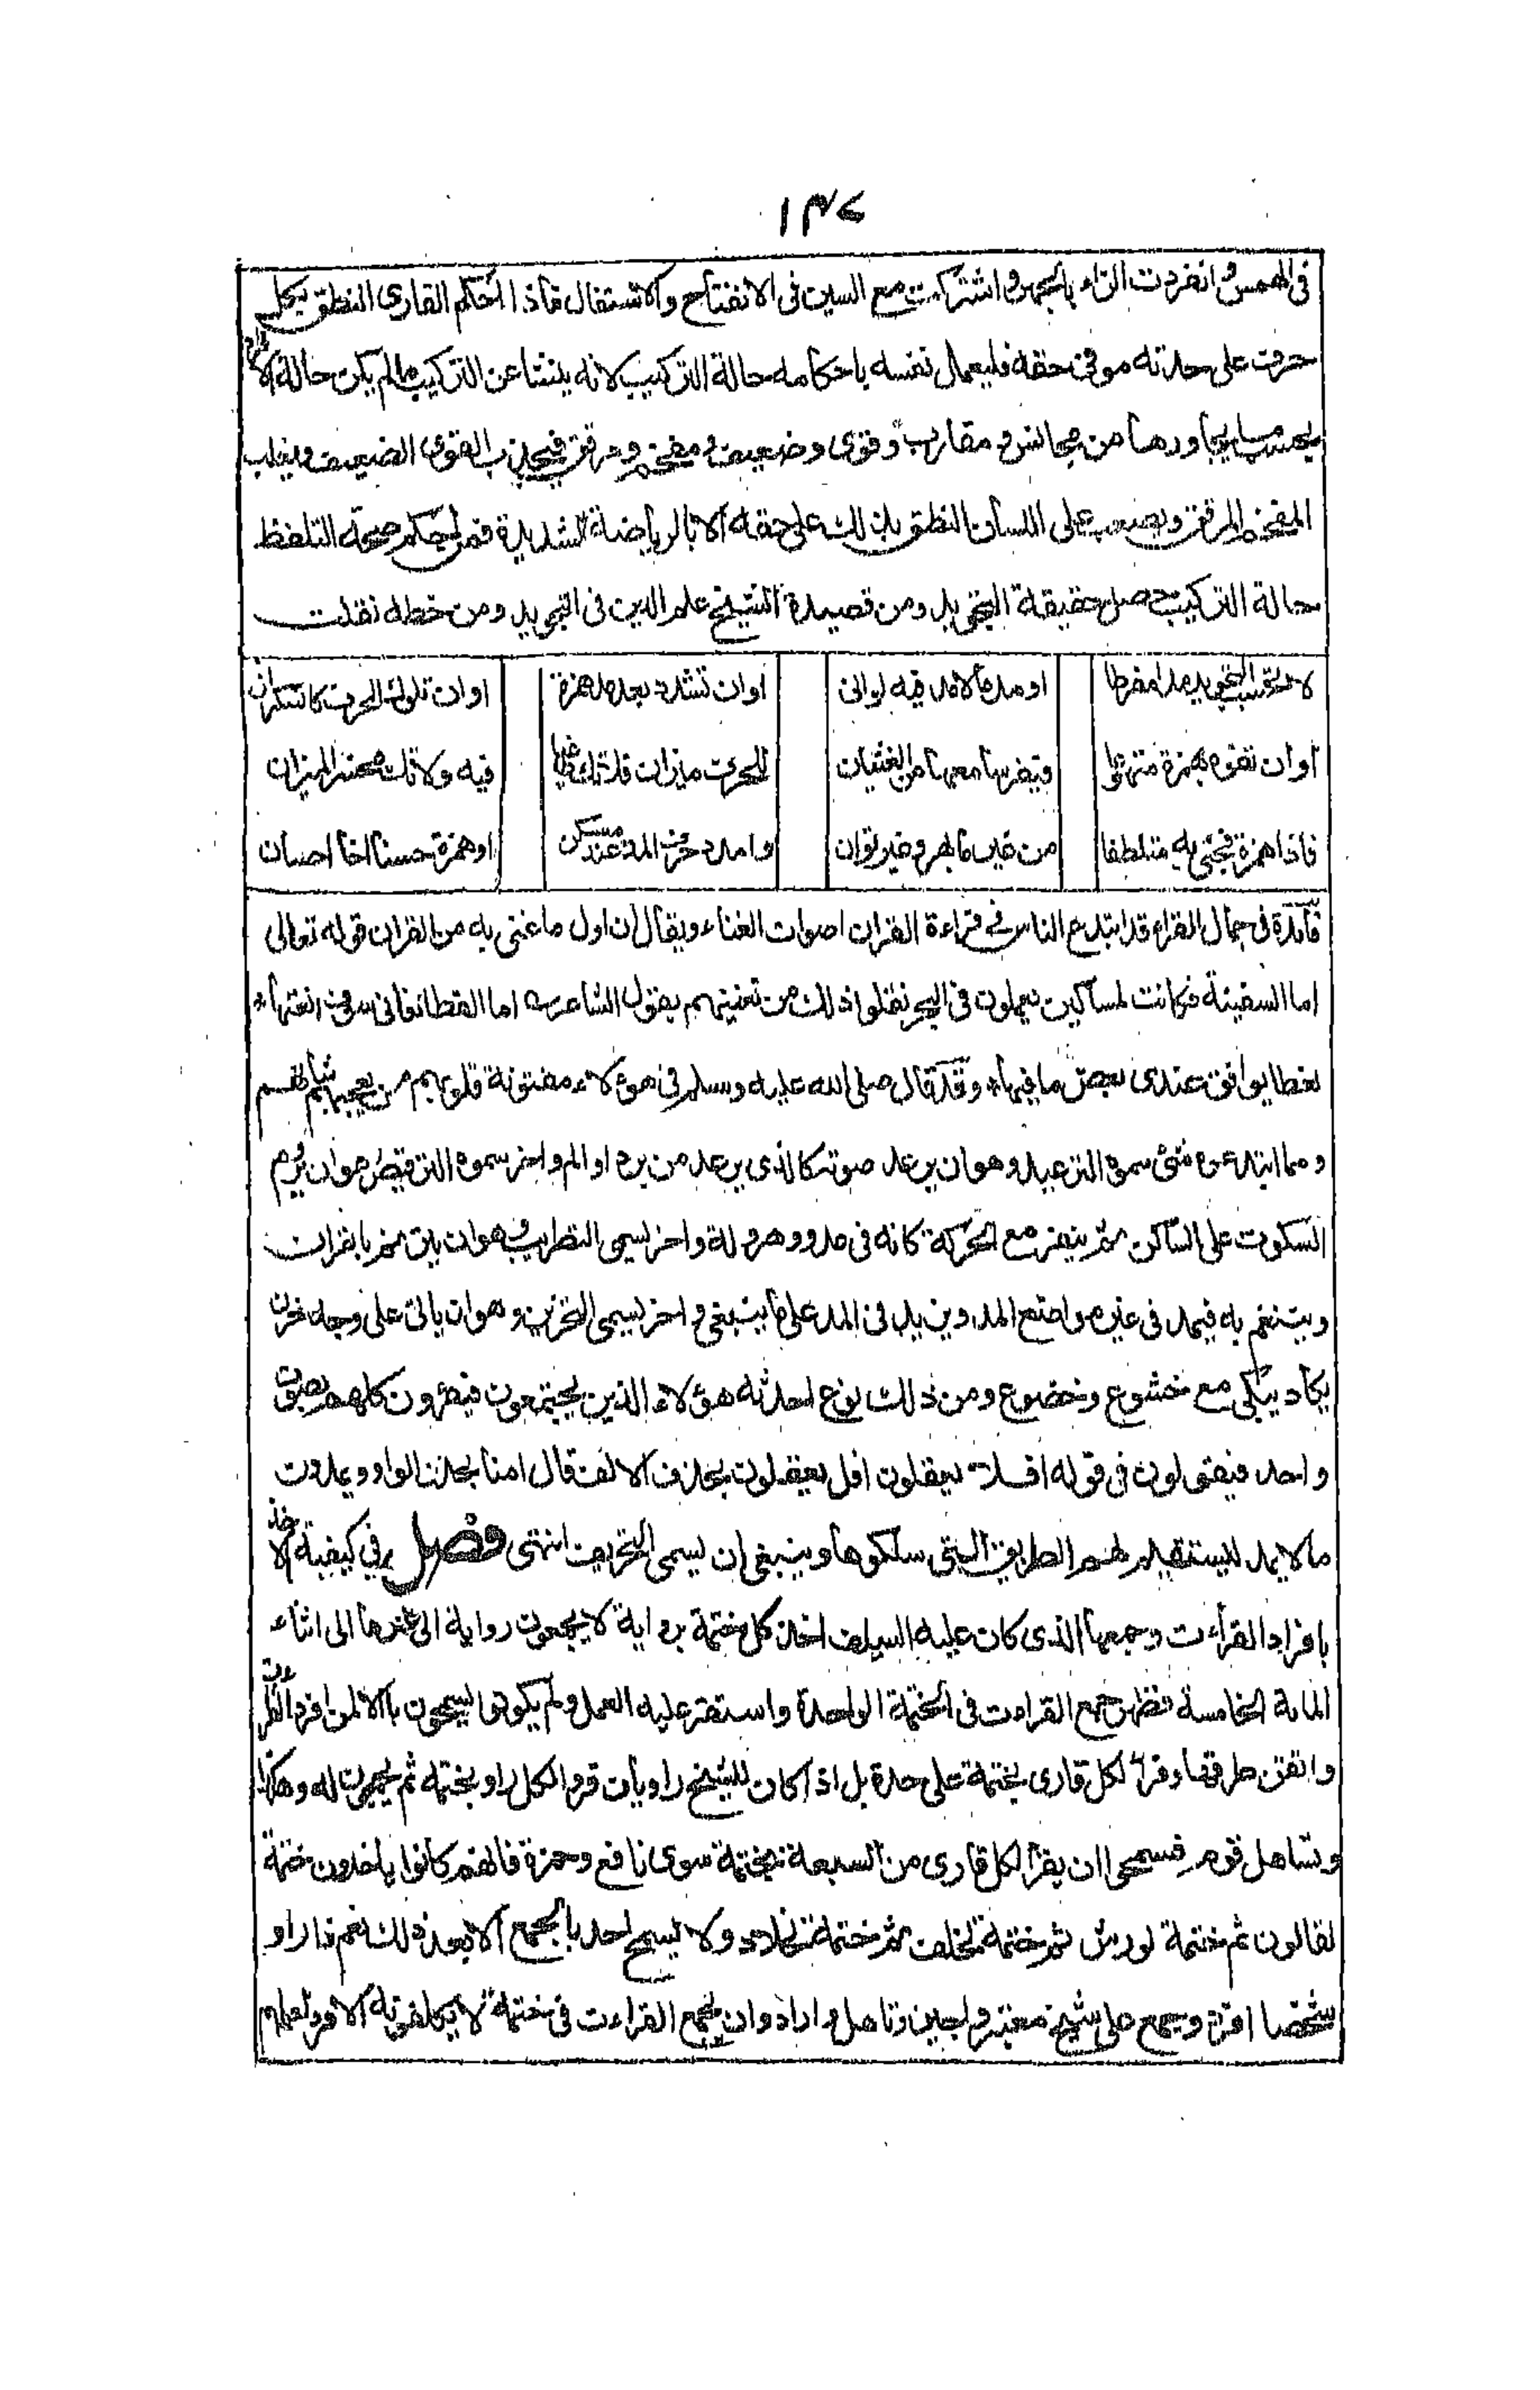 ١٣٧
في الهمس وانفردت الزاء بالجهر واشتركت مع السين في الانفتاح والاستفال فاذا احكم القارى النطق بكل
حرف على حدته موفى حقه فليعمل نفسه باحكامه حالة التركيب لانه ينشا عن التركيب ما لم يكن حالة الافراد
بحسب ما يجاورها من مجانس ومقارب وقوى وضعيف ومفخم ومرقق فيجذب القوى الضعيف ويغلب
المفخم المرقق ويصعب على اللسان النطق بذلك على حقه الا بالرياضة الشديدة فمن احكم صحة التلفظ
حالة التركيب حصل حقيقة التجويد ومن قصيدة الشيخ علم الدين فى التجويد ومن خطه نقلت
لا تحسب التجويد مدا مفرطا او مد ما لا مد فيه لوانى او ان تشدد بعد مد همزة او ان تلوك الحرف كالسكران
او ان تفوه بهمزة متهوعا فيفر سامعها من الغثيان للحرف ميزان فلا تك طاغيا فيه ولا تك مخسر الميزان
فاذا همزة فجئى به متلطفا من غير ما بهر وغير توان وامدد حرف المد عند مسكن او همزة حسنا اخا احسان
فائدة فى جمال القراء قد ابتدع الناس في قراءة القران اصوات الغناء ويقال ان اول ما غنى به من القران قوله تعالى
اما السفينة فكانت لمساكين يعملون فى البحر نقلوا ذلك من تغنيهم بقول الشاعر اما القطا فانى سوف انعتها
نعتا يوافق عندى بعض ما فيها وقد قال صلى الله عليه وسلم فى هؤلاء مفتونة قلوبهم من يعجبهم شانهم
ومما ابتدعوه شئ سموه الترعيد وهو ان يرعد صوته كالذى يرعد من برد او الم واخر سموه الترقيص هو ان يروم
السكوت على الساكن ثم ينفر مع الحركة كانه فى عدو وهرولة واخر يسمى التطريب وهو ان يترنم بالقران
ويتنغم به فيمد فى غير مواضع المد ويزيد فى المد على ما ينبغى واخر يسمى التحزين وهو ان ياتى على وجه حزين
يكاد يبكى مع خشوع وخضوع ومن ذلك نوع احدثه هؤلاء الذين يجتمعون فيقرؤن كلهم بصوت
واحد فيقولون فى قوله افلا تعقلون افل يعقلون بحذف الالف قال امنا بحذف الواو ويمدون
ما لا يمد ليستقيم لهم الطريق التى سلكوها وينبغى ان يسمى التحريف انتهى فصل في كيفية الاخذ
بافراد القراءت وجمعها الذى كان عليه السلف اخذ كل ختمة برواية لا يجمعون رواية الى غيرها الى اثناء
الماىة الخامسة فظهر جمع القراءت فى الختمة الواحدة واستقر عليه العمل ولم يكونوا يسمحون به الا لمن افرد القراءت
واتقن طرقها وقرأ لكل قارى بختمة على حدة بل اذا كان للشيخ راويان قروا لكل راو بختمة ثم يجمعون له وهكذا
وتساهل قوم فسمحوا ان يقرأ لكل قارى من السبعة بختمة سوى نافع وحمزة فانهم كانوا ياخذون ختمة
لقالون ثم ختمة لورش ثم ختمة لخلف ثم ختمة لخلاد ولا يسمح احد بالجمع الا بعد ذلك نعم اذا راو
شخصا افرد وجمع على شيخ معتبر واجيز وتاهل واراد وان يجمع القراءت فى ختمة لا يكلفونه الافراد لعلمهم